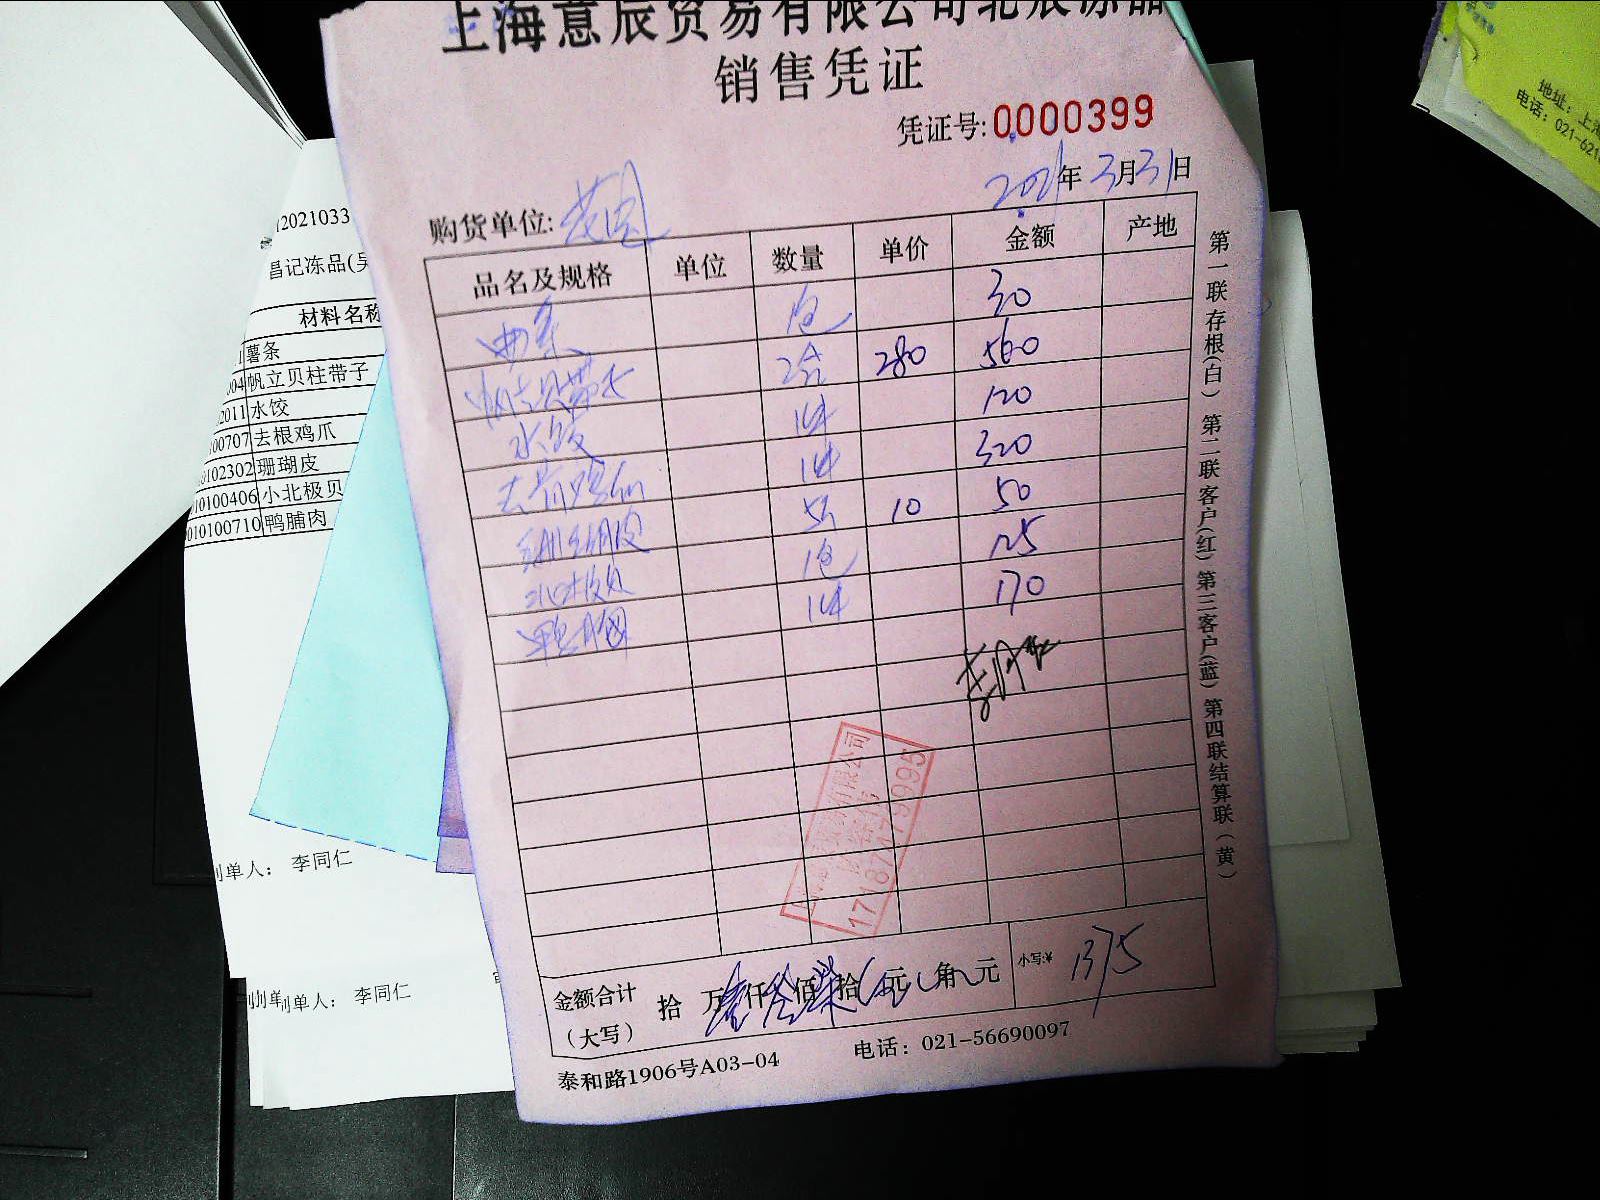 上海意辰贸易有限公司北辰冻品
销售凭证
凭证号:0000399
2021年3月31日
购货单位:
品名及规格 单位 数量 单价 金额 产地
曲条 1包 30
帆立贝带子 2盒 280 560
水饺 1件 120
去骨鸡爪 1件 320
珊瑚皮 5 10 50
小北极贝 1包 125
鸭脯肉 1件 170
17187179995
金额合计
(大写)
拾 万 仟 佰 拾 元 角 元
小写:¥ 1375
泰和路1906号A03-04
电话：021-56690097
第一联存根(白) 第二联客户(红) 第三客户(蓝) 第四联结算联(黄)
12021033
昌记冻品(吴
材料名称
薯条
004 帆立贝柱带子
2011 水饺
00707 去根鸡爪
0102302 珊瑚皮
0100406 小北极贝
010100710 鸭脯肉
制单人： 李同仁
制单人： 李同仁
地址：上海
电话：021-621